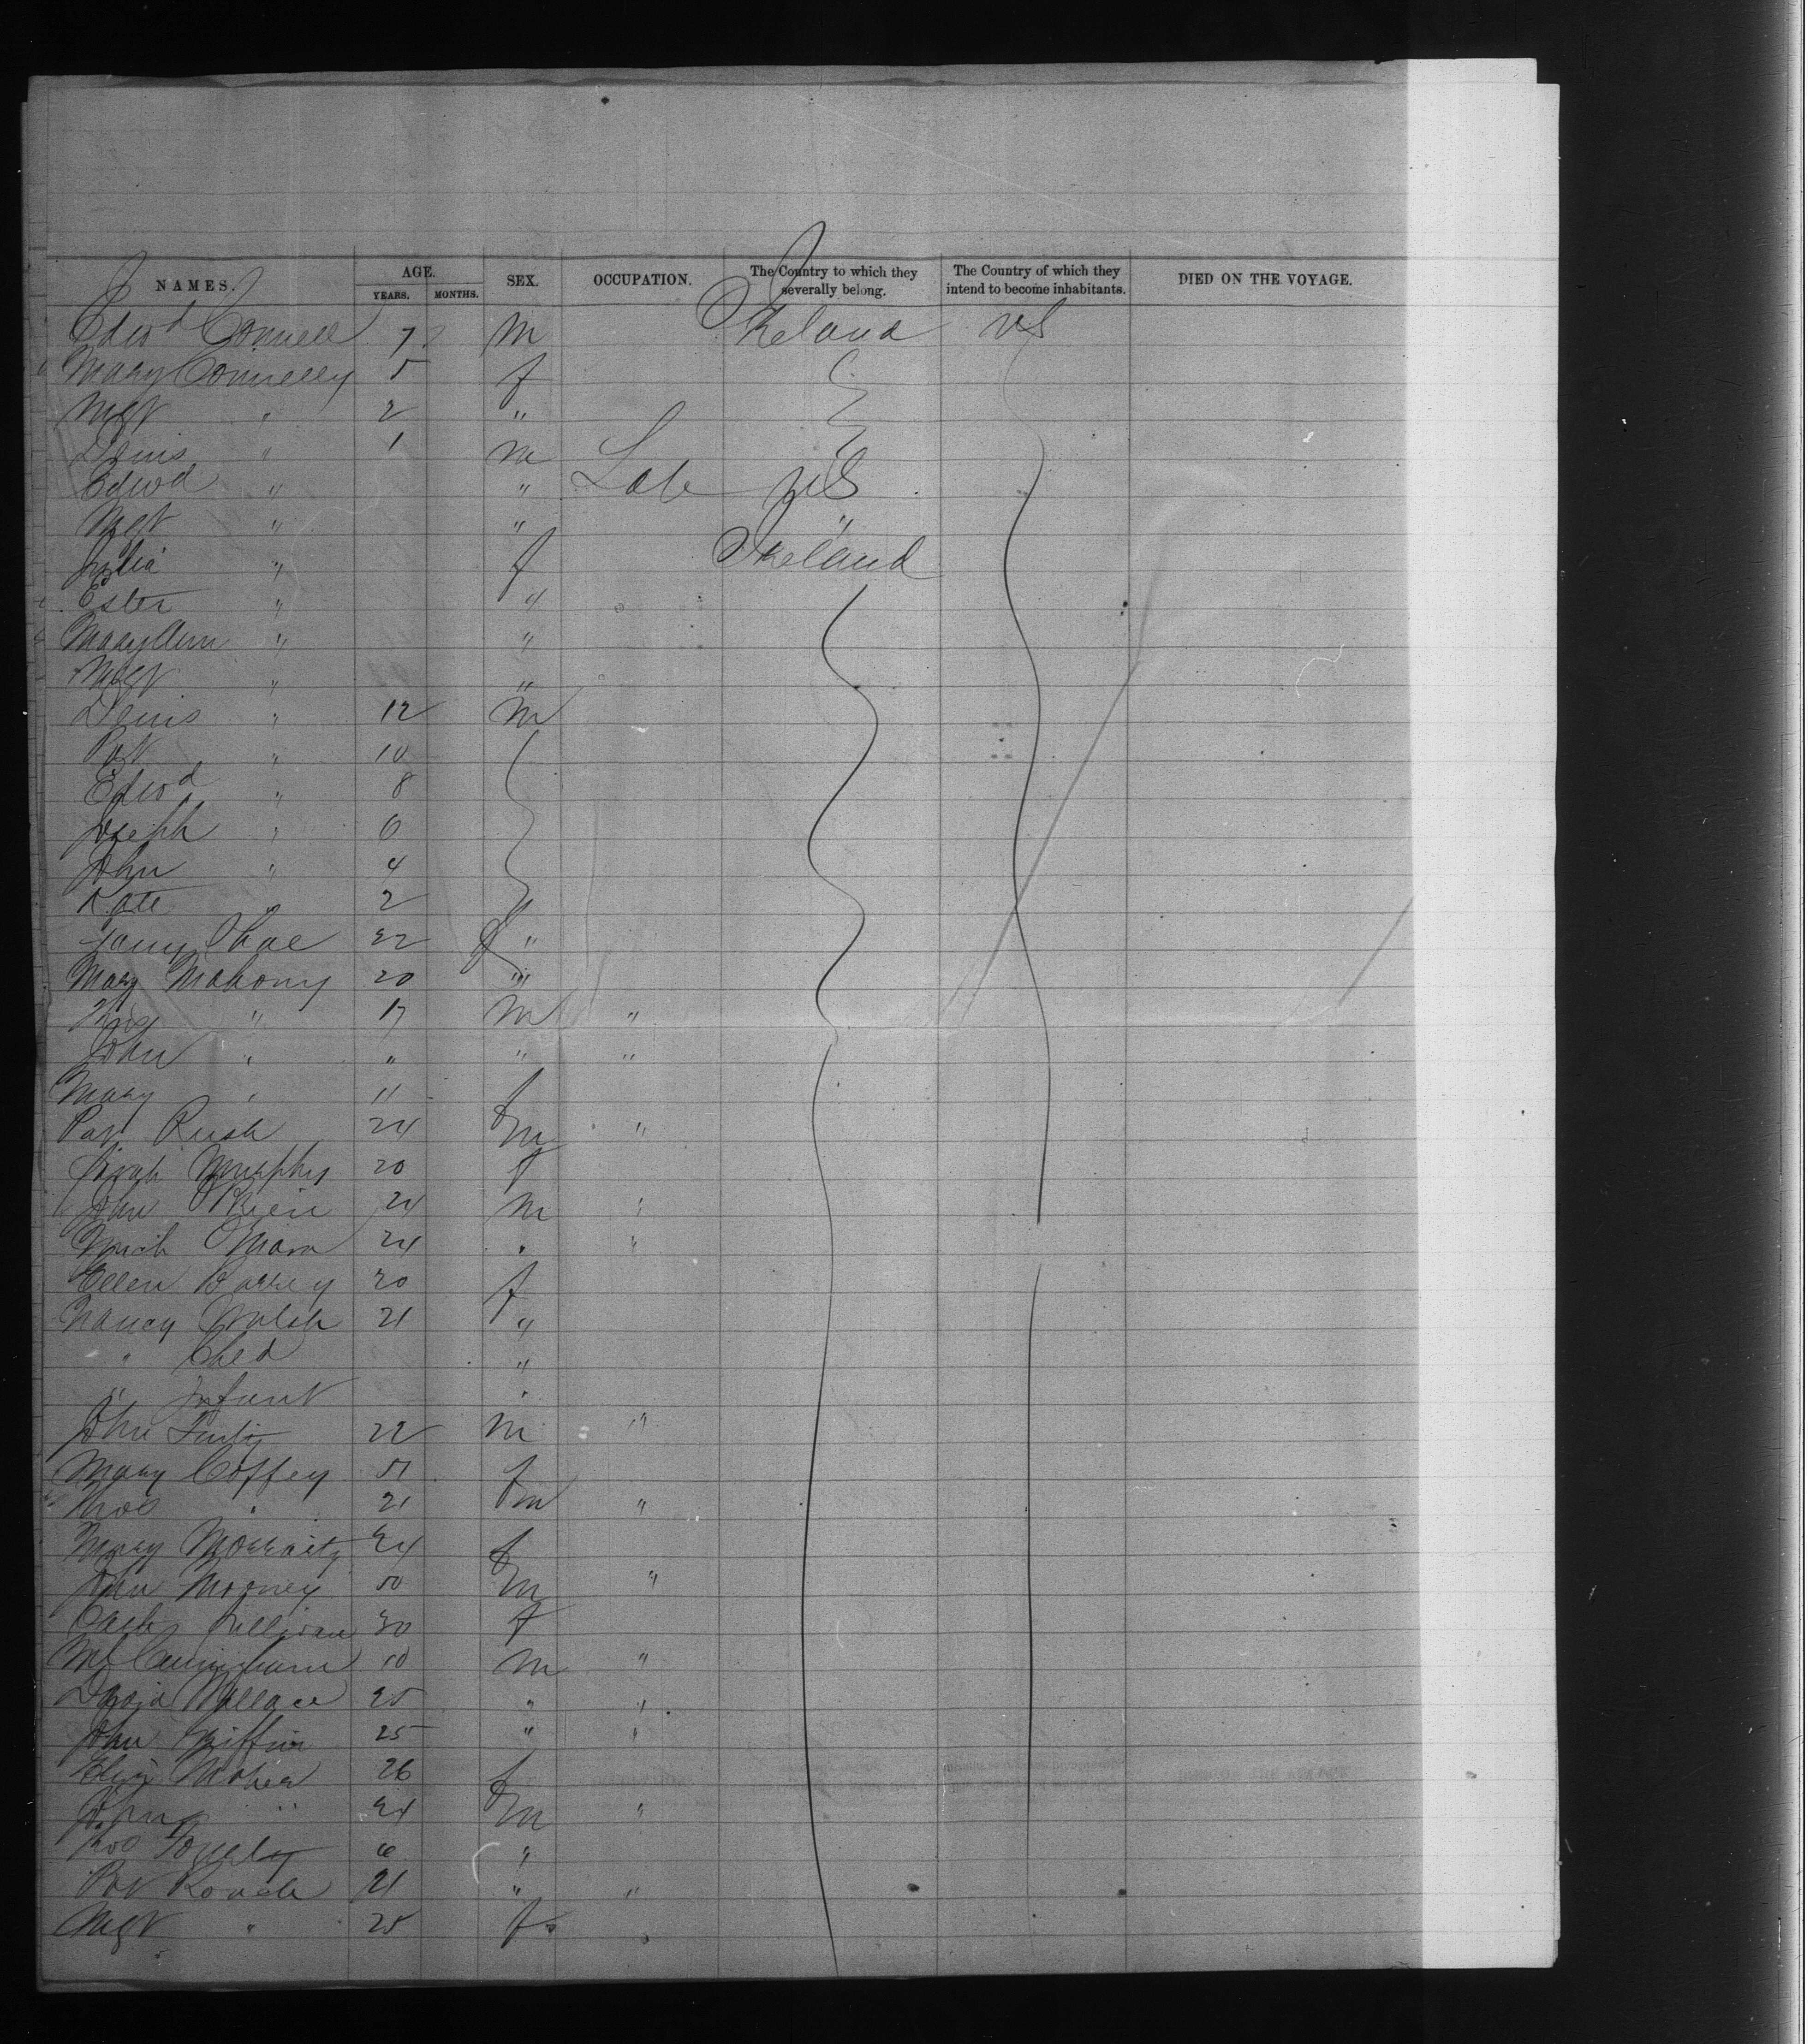 NAMES. AGE. YEARS. MONTHS. SEX. OCCUPATION. The Country to which they severally belong. The Country of which they intend to become inhabitants. DIED ON THE VOYAGE.
Edwd Connell 7 m Ireland US
Mary Connelly 5 f
Mgt " 2 "
Denis " 1 m
Edwd " " Lab US
Mgt " " "
Julia " f Ireland
Ester " "
Mary Ann " "
Mgt " "
Denis " 12 m
Pat " 10
Edwd " 8
Joseph " 6
John " 4
Kate " 2
Shae 22 f "
Mary Mahony 20 "
" 17 m "
John " " " "
Mary " 11 f
Pat Rush 24 m "
Murphy 20 f
John OBrien 24 m "
Mich OMara 24 " "
Ellen 20 f
Nancy Walsh 21 "
" Child "
" Infant "
John 22 m "
Mary Coffey 51 f
Thos " 21 m "
Mary Moriarity 24 f
John Mooney 50 m "
Cath Sullivan 30 f
Ml Cunningham 10 m "
David Wallace 25 " "
John Griffin 25 " "
Eliza Maher 26 f
John " 24 m "
6 "
Pat Roach 21 " "
Mgt " 25 f